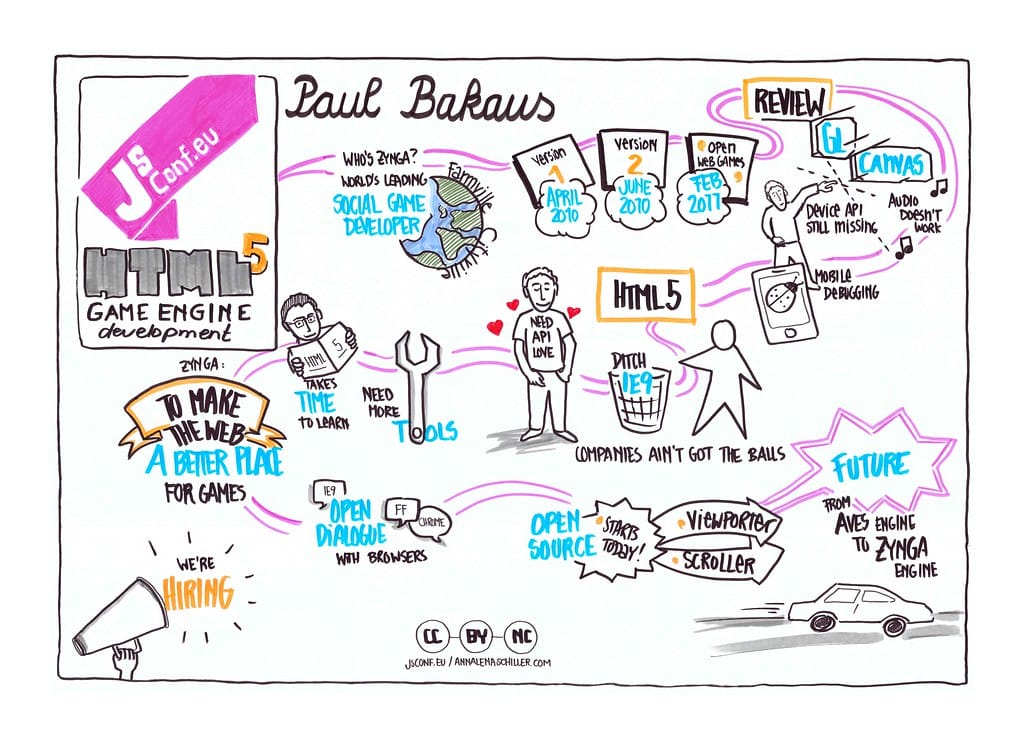 Paul Bakaus
JSConf.eu
HTML5
GAME ENGINE
development
WHO'S ZYNGA?
WORLD'S LEADING
SOCIAL GAME
DEVELOPER
Farmville
Cityville
version
1
APRIL
2010
version
2
JUNE
2010
open
web games
FEB
2011
REVIEW
GL
CANVAS
AUDIO
DOESN'T
WORK
DEVICE API
STILL MISSING
MOBILE
DEBUGGING
HTML 5
NEED
API
LOVE
DITCH
IE9
COMPANIES AIN'T GOT THE BALLS
HTML 5
TAKES
TIME
TO LEARN
NEED
MORE
TOOLS
ZYNGA:
TO MAKE
THE WEB
A BETTER PLACE
FOR GAMES
IE9
FF
CHROME
OPEN
DIALOGUE
WITH BROWSERS
OPEN
SOURCE
STARTS
TODAY!
VIEWPORTER
SCROLLER
FUTURE
FROM
AVES ENGINE
TO ZYNGA
ENGINE
WE'RE
HIRING
CC BY NC
JSCONF.EU / ANNALENASCHILLER.COM